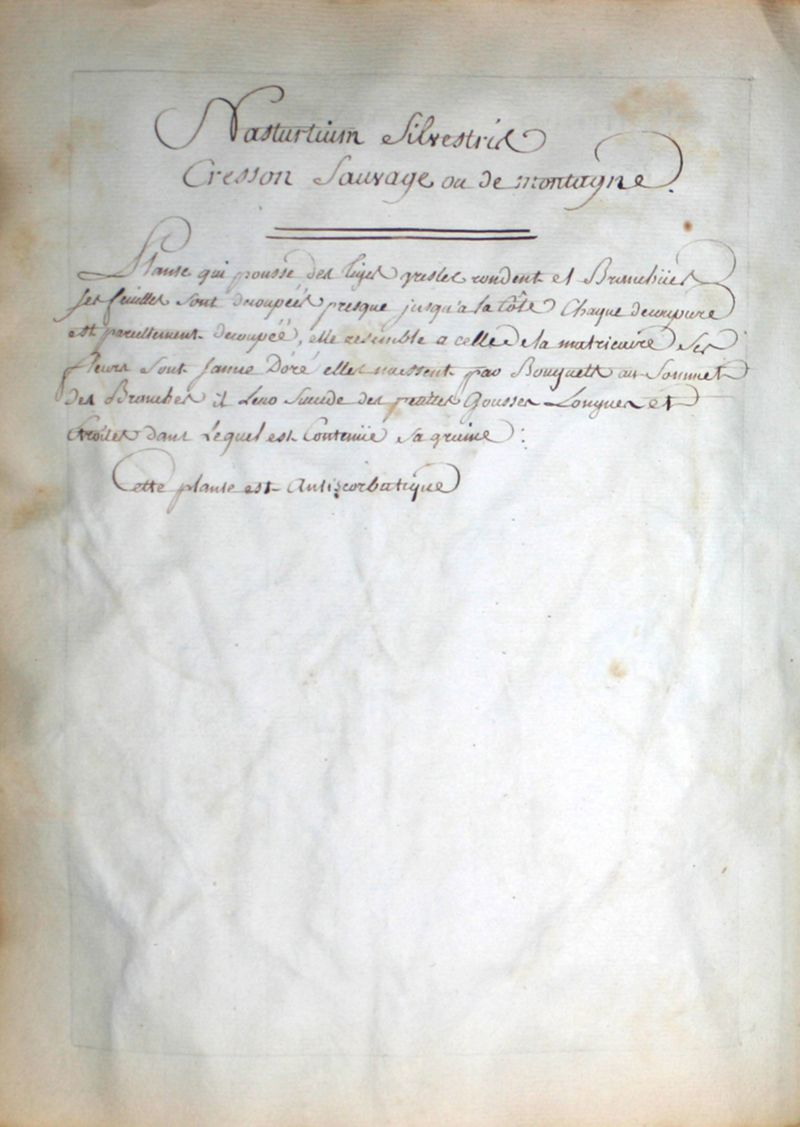 Nasturtium Silvestris
Cresson Sauvage ou de montagne.
Plante qui pousse des tiges gresles rondent et Branchües
ses feuilles sont decoupéés presque jusqu'a la Côte Chaque decoupure
est pareillement decoupéé, elle resemble a celle de la matricaire Ses
fleurs sont Jaune Doré elles naissent par Bouquets au Sommet
des Branches il leur succede des petites Gousses Longues et
Etroites dans Lequel est Contenüe sa graine :
Cette plante est Antiscorbutique